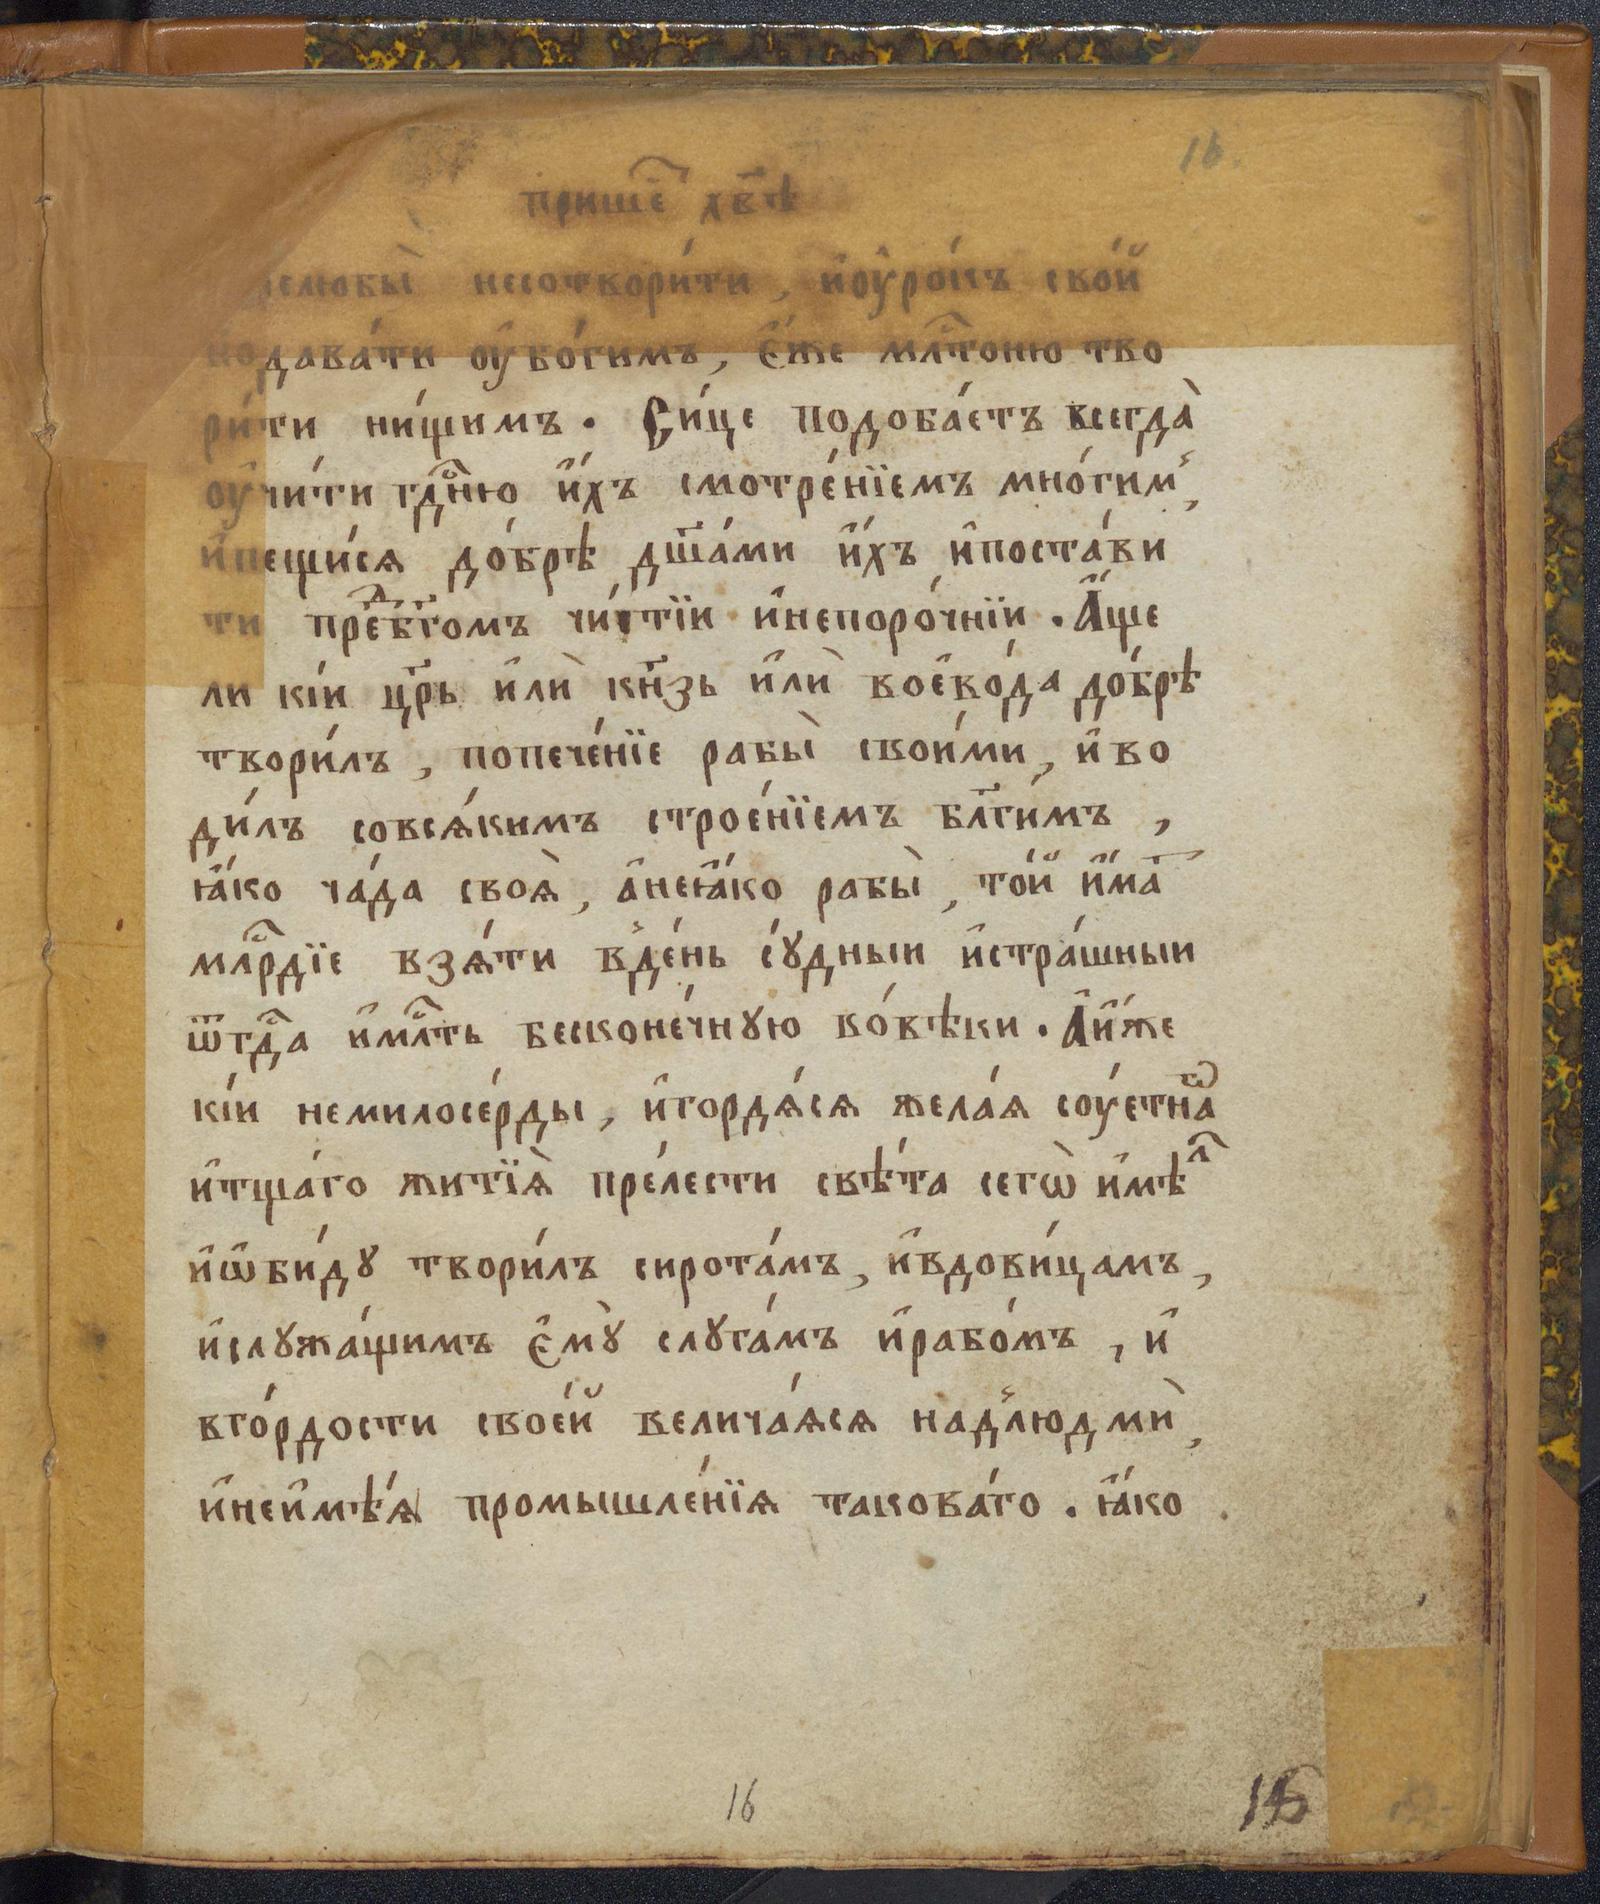 16.
прише҇ хв҃ѣ
релюбы̀ несотвори́ти , и҆оу҆ро́къ сво́й
подава́ти оу҆бо́гимъ , є҆́же мл҇тоню тво
ри́ти ни́щимъ . Си́це подоба́етъ всегда̀
оу҆чи́ти гд҇ню и҆́хъ смотре́нїемъ мно́гим ,
и҆пещи́ся до́брѣ дш҃а́ми и҆́хъ и҆поста́ви
ти пред̾бг҃омъ чи́стїи и҆непоро́чнїи . А҆́ще
ли кі́и цр҃ь и҆лѝ кн҃зь и҆лѝ воево́да до́брѣ
твори́лъ , попече́нїе рабы̀ свои́ми , и҆во
ди́лъ совся́кимъ строе́нїемъ бл҃ги́мъ ,
ꙗ҆́ко ча́да своѧ̀ , а҆неꙗ҆́ко рабы̀ , то́й и҆́мат
мл҇рдїе взѧ́ти в̾де́нь сꙋ́дныи и҆стра́шныи
ѿгд҇а и҆мл҇ть бесконе́чнꙋю во́вѣки . А҆и҆́же
кі́и немилосе́рды , и҆гордѧ́сѧ жела́ѧ соу́етнаѡ
и҆тща́го житїѧ̀ пре́лести свѣ́та сегѡ̀ и҆мѣл
и҆ѡ҆би́дꙋ твори́лъ сирота́мъ , и҆вдови́цамъ ,
и҆слꙋжа́щимъ є҆мꙋ̀ слꙋга́мъ и҆рабо́мъ , и҆
вго́рдости свое́й велича́ѧсѧ над̾людмѝ ,
и҆неи҆мѣ́ѧ промышле́нїѧ такова́го . ꙗ҆́ко
16